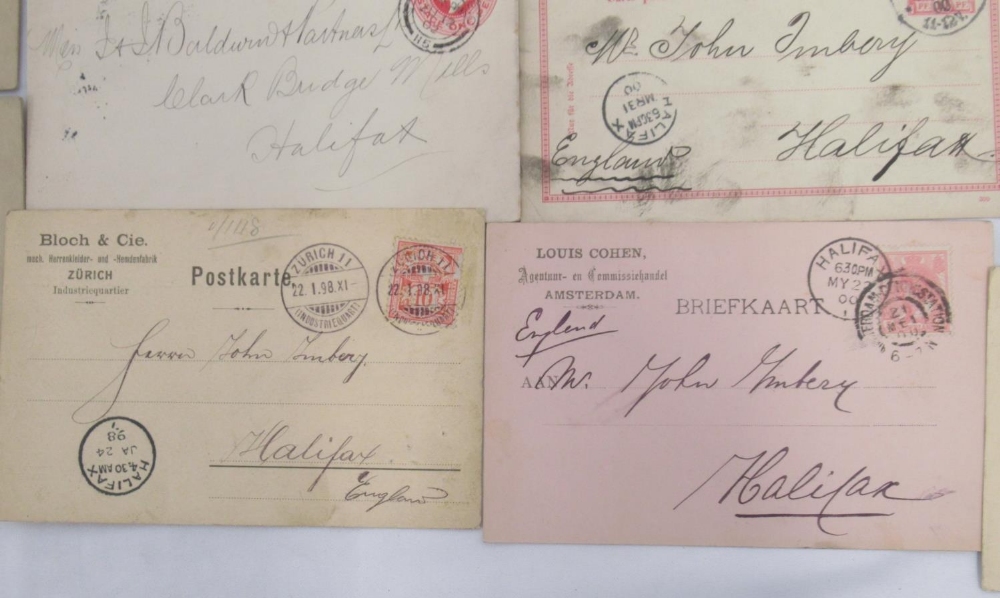 J & J Baldwin & Partners L
Clark Bridge Mills
Halifax
115
Mr. John Imbery
HALIFAX
6.30PM
MR 31
00
England
Halifax
00
11-12
Bloch & Cie.
mech. Herrenkleider- und -Hemdenfabrik
ZÜRICH
Industriequartier
Postkarte
ZÜRICH 11
22.1.98.XI-
(INDUSTRIEQUART)
22.1.98.XI
10
Herrn John Imbery.
Halifax
England
HALIFAX
4.30AM
JA 24
98
LOUIS COHEN,
Agentuur- en Commissiehandel
AMSTERDAM.
BRIEFKAART
England
HALIFAX
630PM
MY 22
00
6-7N
AAN Mr. John Imbery
Halifax